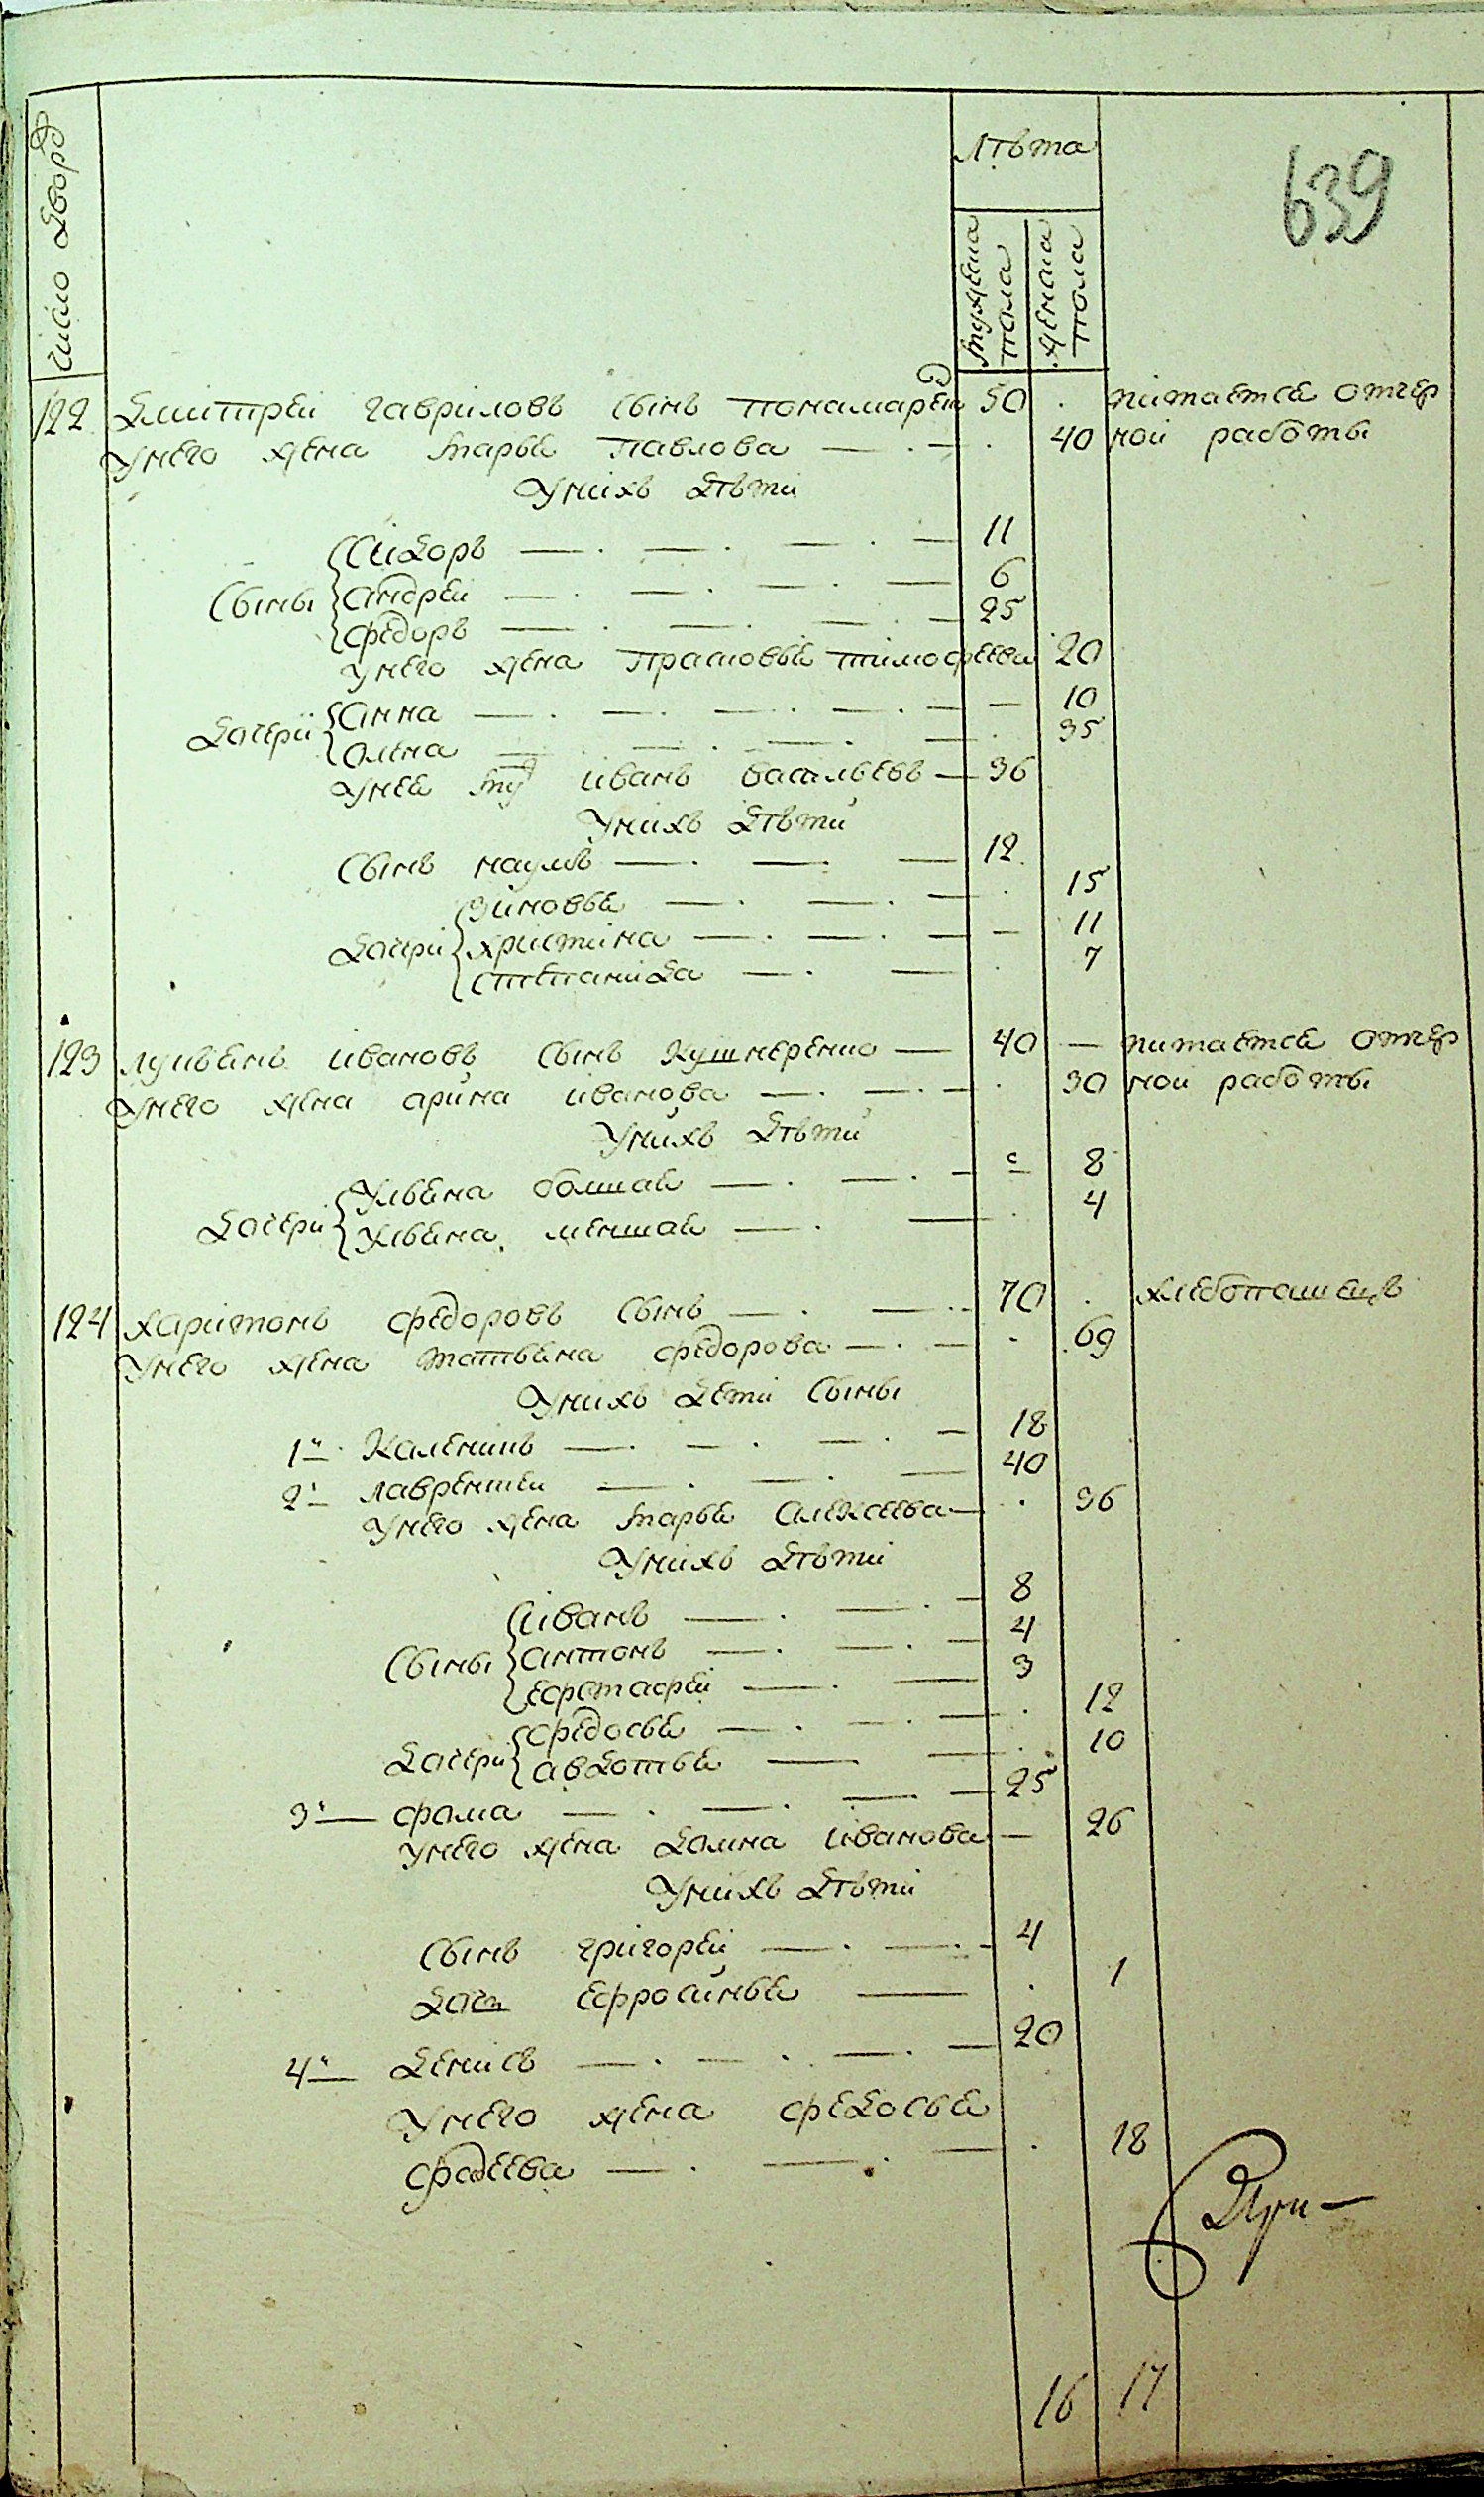 число дворов
Лѣта
639
мужеска пола
женска пола
122 Дмитреи гавриловъ сынъ понамаренко 50 . питаетсѧ отчер
У него жена марьѧ павлова — . — . 40 нои работы
У нихъ дѣти
Сыны
Сидоръ — . — . — . — 11
андреи — . — . — . — 6
федоръ — . — . — . — 25
У него жена прасковьѧ тимофеева 20
Дочери
анна — . — . — . — . — — 10
олена — . — . — . — . 35
У неѧ муж иванъ васильевъ — 36
У нихъ дѣти
Сынъ наумъ — . — . — 12
Дочери
зиновьѧ — . — . — . 15
христина — . — . — — 11
степанида — . — . 7
123 лукьѧнъ ивановъ сынъ кушнеренко — 40 — питаетсѧ отчер
У него жена арина иванова — . — . — . 30 нои работы
У нихъ дѣти
Дочери
Ульѧна болшаѧ — . — . — 8
Ульѧна меншаѧ — . — . 4
124 харитонъ федоровъ сынъ — . — . 70 . хлебопашецъ
У него жена татьѧна федорова — . — . 69
У нихъ дети сыны
1й Каленикъ — . — . — . — 18
2й лаврентеи — . — . — 40
У него жена марьѧ алексеева — . 36
У нихъ дѣти
Сыны
иванъ — . — . — 8
антонъ — . — . — 4
ефстафеи — . — 3
Дочери
федосьѧ — . — . — . 12
авдотьѧ — — . 10
3й — фома — . — . — — 25
У него жена домна иванова — 26
У нихъ дѣти
Сынъ григореи — . — . - 4
Дочь ефросиньѧ — . 1
4й Денисъ — . — . — . — 20
У него жена федосьѧ
фадеева — . — . — . 18
16 17